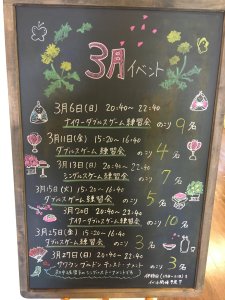 3月イベント
3月6日(日) 20:40〜22:40
ナイターダブルスゲーム練習会 のこり9名
3月11日(金) 15:20〜16:40
ダブルスゲーム練習会 のこり4名
3月13日(日) 20:40〜22:40
シングルスゲーム練習会 のこり7名
3月15日(火) 15:20〜16:40
ダブルスゲーム練習会 のこり5名
3月20日 20:40〜22:40
ナイターダブルスゲーム練習会 のこり10名
3月25日(金) 15:20〜16:40
ダブルスゲーム練習会 のこり3名
3月27日(日) 20:40〜22:40
のこり3名